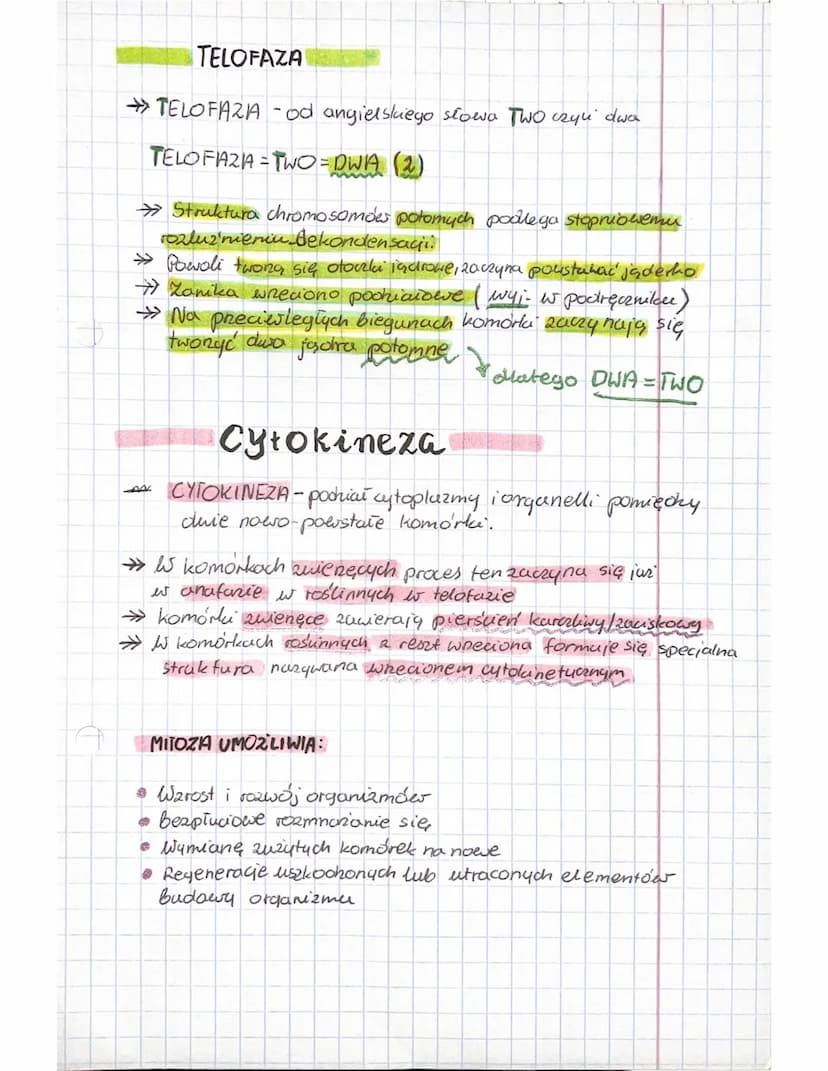 TELOFAZA
->> TELOFAZA - od angielskiego słowa TWO czyli dwa
TELOFAZA = TWO = DWA (2)
->> Struktura chromosomów potomnych podlega stopniowemu
rozluźnieniu dekondensacji.
->> Powoli tworzą się otoczki jądrowe, zaczyna powstawać jąderko
->> Zanika wrzeciono podziałowe (wyj. w podręczniku)
->> Na przeciwległych biegunach komórki zaczynają się
tworzyć dwa jądra potomne
dlatego DWA = TWO
Cytokineza
CYTOKINEZA - podział cytoplazmy i organelli pomiędzy
dwie nowo-powstałe komórki.
->> W komórkach zwierzęcych proces ten zaczyna się już
w anafazie w roślinnych w telofazie
->> komórki zwierzęce zawierają pierścień kurczliwy/zaciskowy
->> W komórkach roślinnych z reszt wrzeciona formuje się specjalna
struktura nazywana wrzecionem cytokinetycznym
MITOZA UMOŻLIWIA:
• Wzrost i rozwój organizmów
• bezpłciowe rozmnażanie się
• Wymianę zużytych komórek na nowe
• Regeneracje uszkodzonych lub utraconych elementów
budowy organizmu